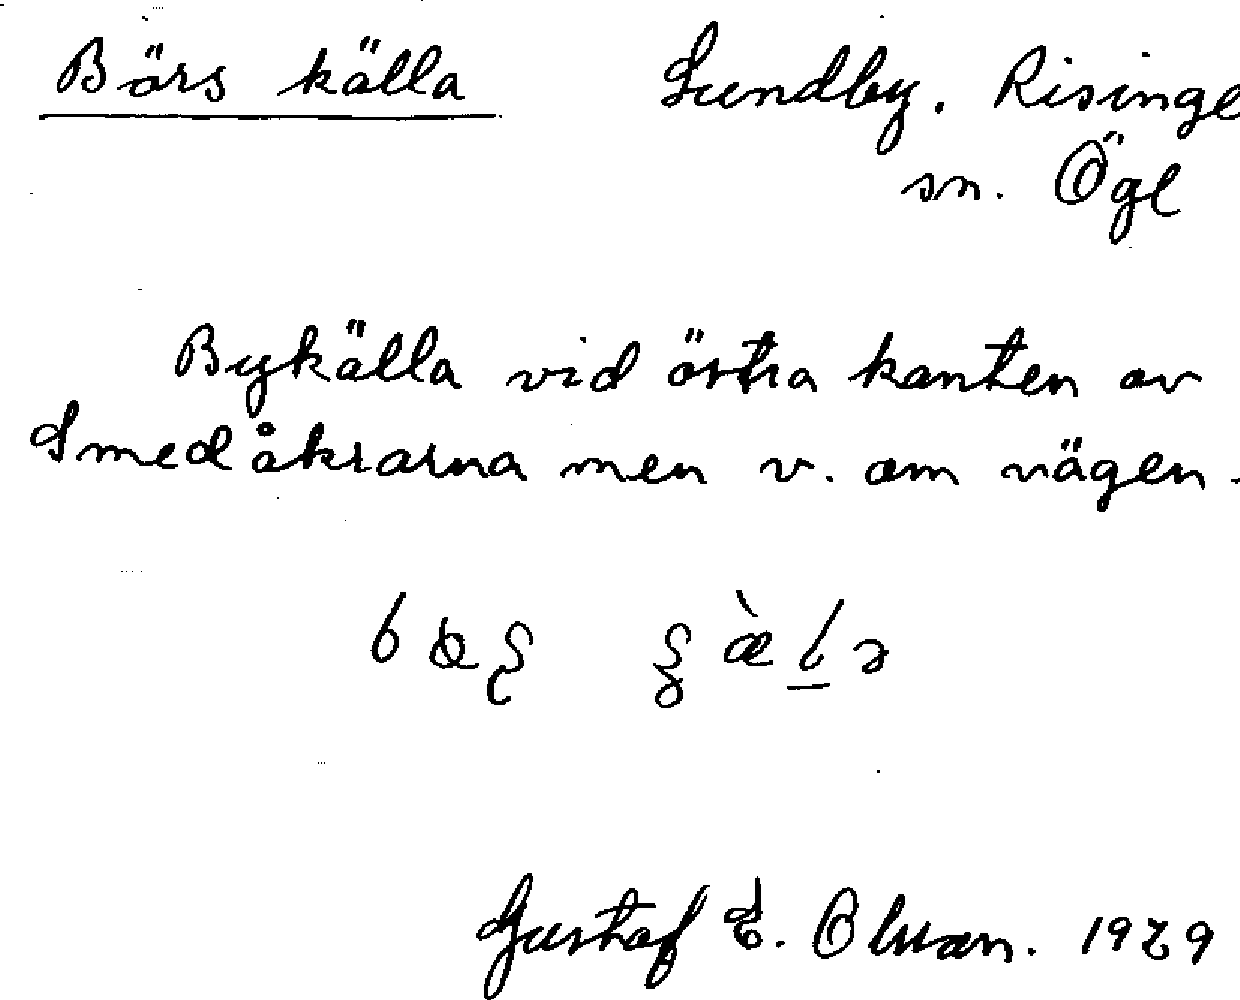 Börs källa Lundby. Risinge
sn. Ögl
Bykälla vid östra kanten av
Smedåkrarna men v. om vägen.
Gustaf E. Olsson. 1929